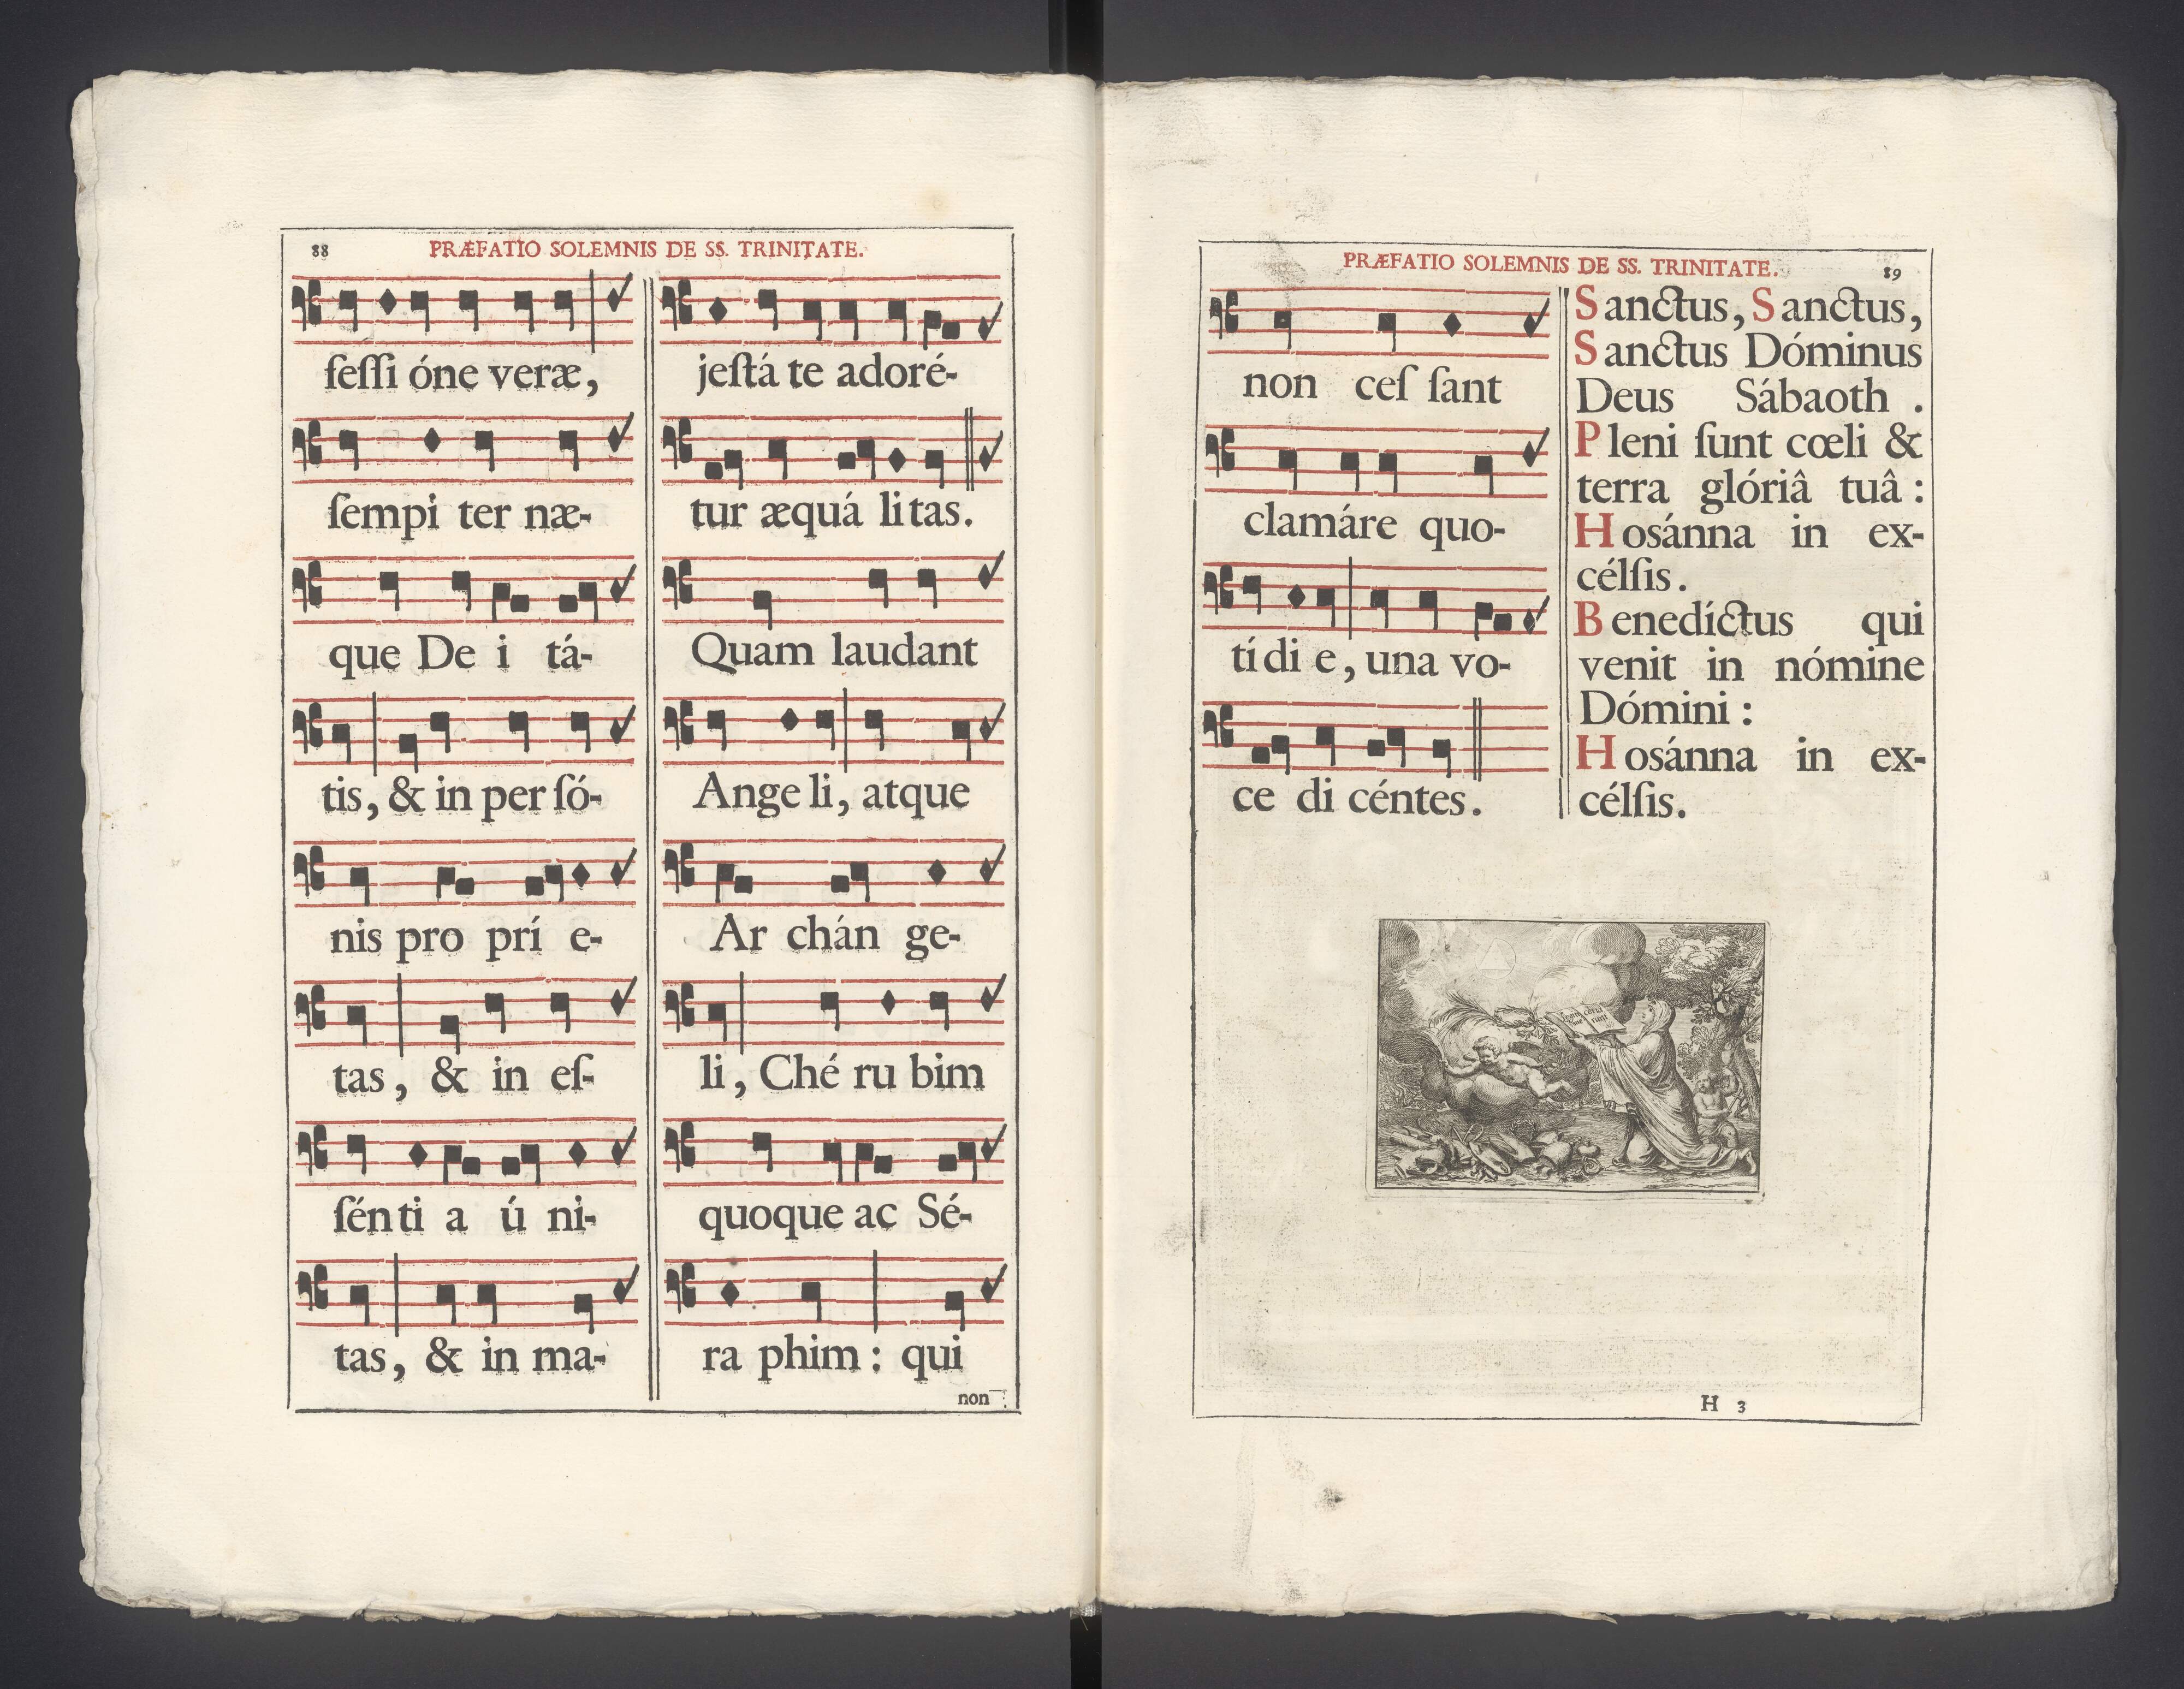 88 PRÆFATIO SOLEMNIS DE SS. TRINITATE.
ſeſſi óne veræ,
ſempi ter næ-
que De i tá-
tis, & in per ſó-
nis pro prí e-
tas, & in eſ-
ſén ti a ú ni-
tas, & in ma-
jeſtá te adoré-
tur æquá li tas.
Quam laudant
Ange li, atque
Ar chán ge-
li, Ché ru bim
quoque ac Sé-
ra phim : qui
non
PRÆFATIO SOLEMNIS DE SS. TRINITATE. 89
non ceſ ſant
clamáre quo-
tí di e, una vo-
ce di céntes.
Sanctus, Sanctus,
Sanctus Dóminus
Deus Sábaoth .
Pleni ſunt cœli &
terra glóriâ tuâ :
Hosánna in ex-
célſis.
Benedíctus qui
venit in nómine
Dómini :
Hosánna in ex-
célſis.
H 3